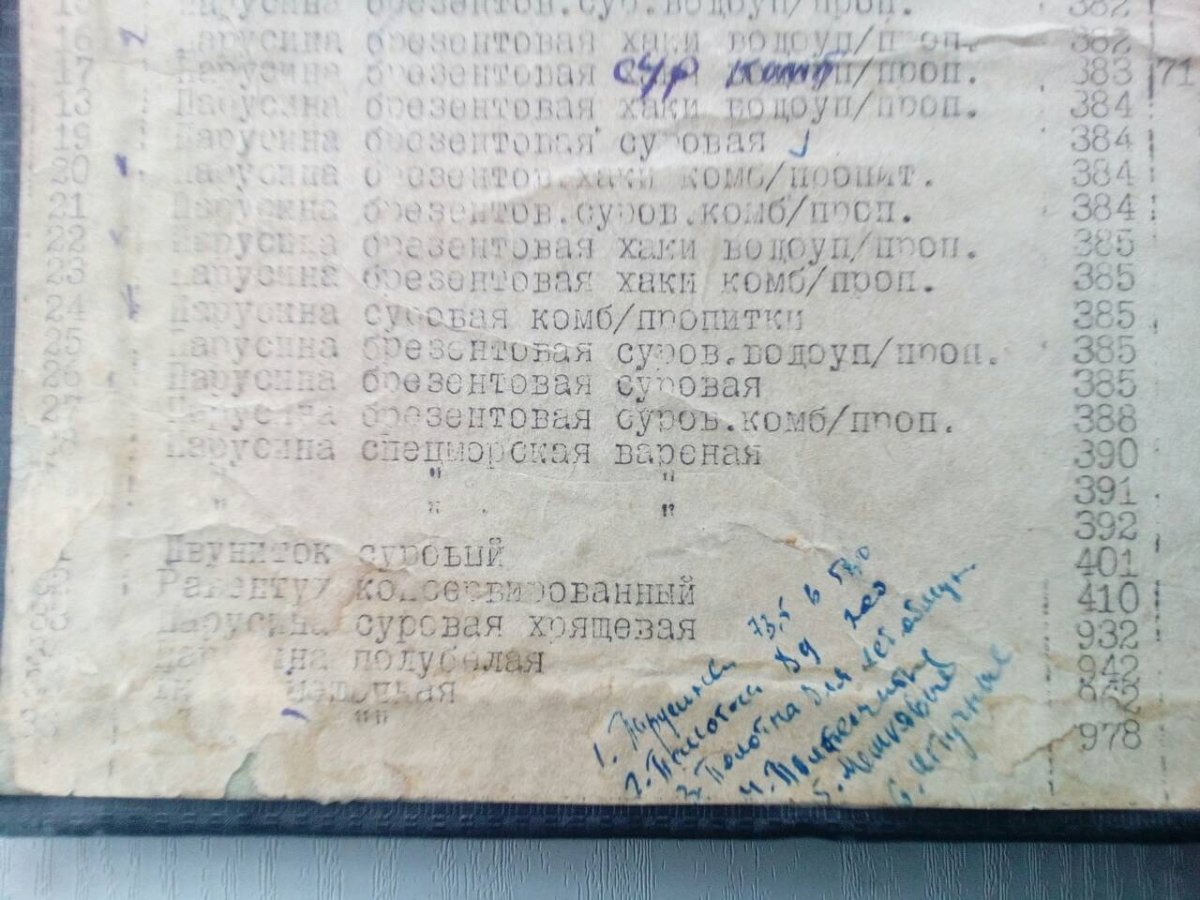 15 Парусина брезентов.сур.водоуп/проп. 382
16 Парусина брезентовая хаки водоуп/проп. 382
17 Парусина брезентовая сур комб п/проп. 383 71
18 Парусина брезентовая хаки водоуп/проп. 384
19 Парусина брезентовая суровая 384
20 Парусина брезентов.хаки комб/пропит. 384
21 Парусина брезентов.суров.комб/проп. 384
22 Парусина брезентовая хаки водоуп/проп. 385
23 Парусина брезентовая хаки комб/проп. 385
24 Парусина суровая комб/пропитки 385
25 Парусина брезентовая суров.водоуп/проп. 385
26 Парусина брезентовая суровая 385
27 Парусина брезентовая суров.комб/проп. 388
Парусина спецморская вареная 390
" " " 391
" " " 392
Двуниток суровый 401
Равентух консервированный 410
Парусина суровая хрящевая 932
Парусина полубелая 942
"" 978
1. Парусина 73,5 в
2. Полотна
3. Полотна для лет
4.
5. Мешковые
6.